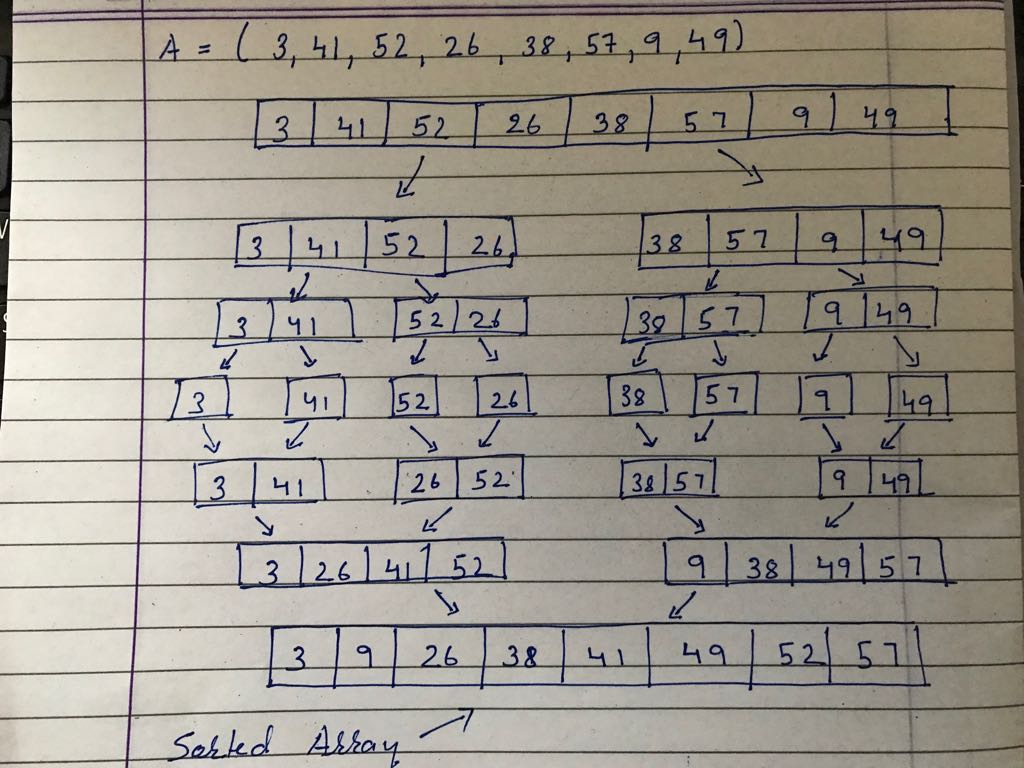 A = ( 3, 41, 52, 26, 38, 57, 9, 49)
3 41 52 26 38 57 9 49
3 41 52 26 38 57 9 49
3 41 52 26 38 57 9 49
3 41 52 26 38 57 9 49
3 41 26 52 38 57 9 49
3 26 41 52 9 38 49 57
3 9 26 38 41 49 52 57
Sorted Array